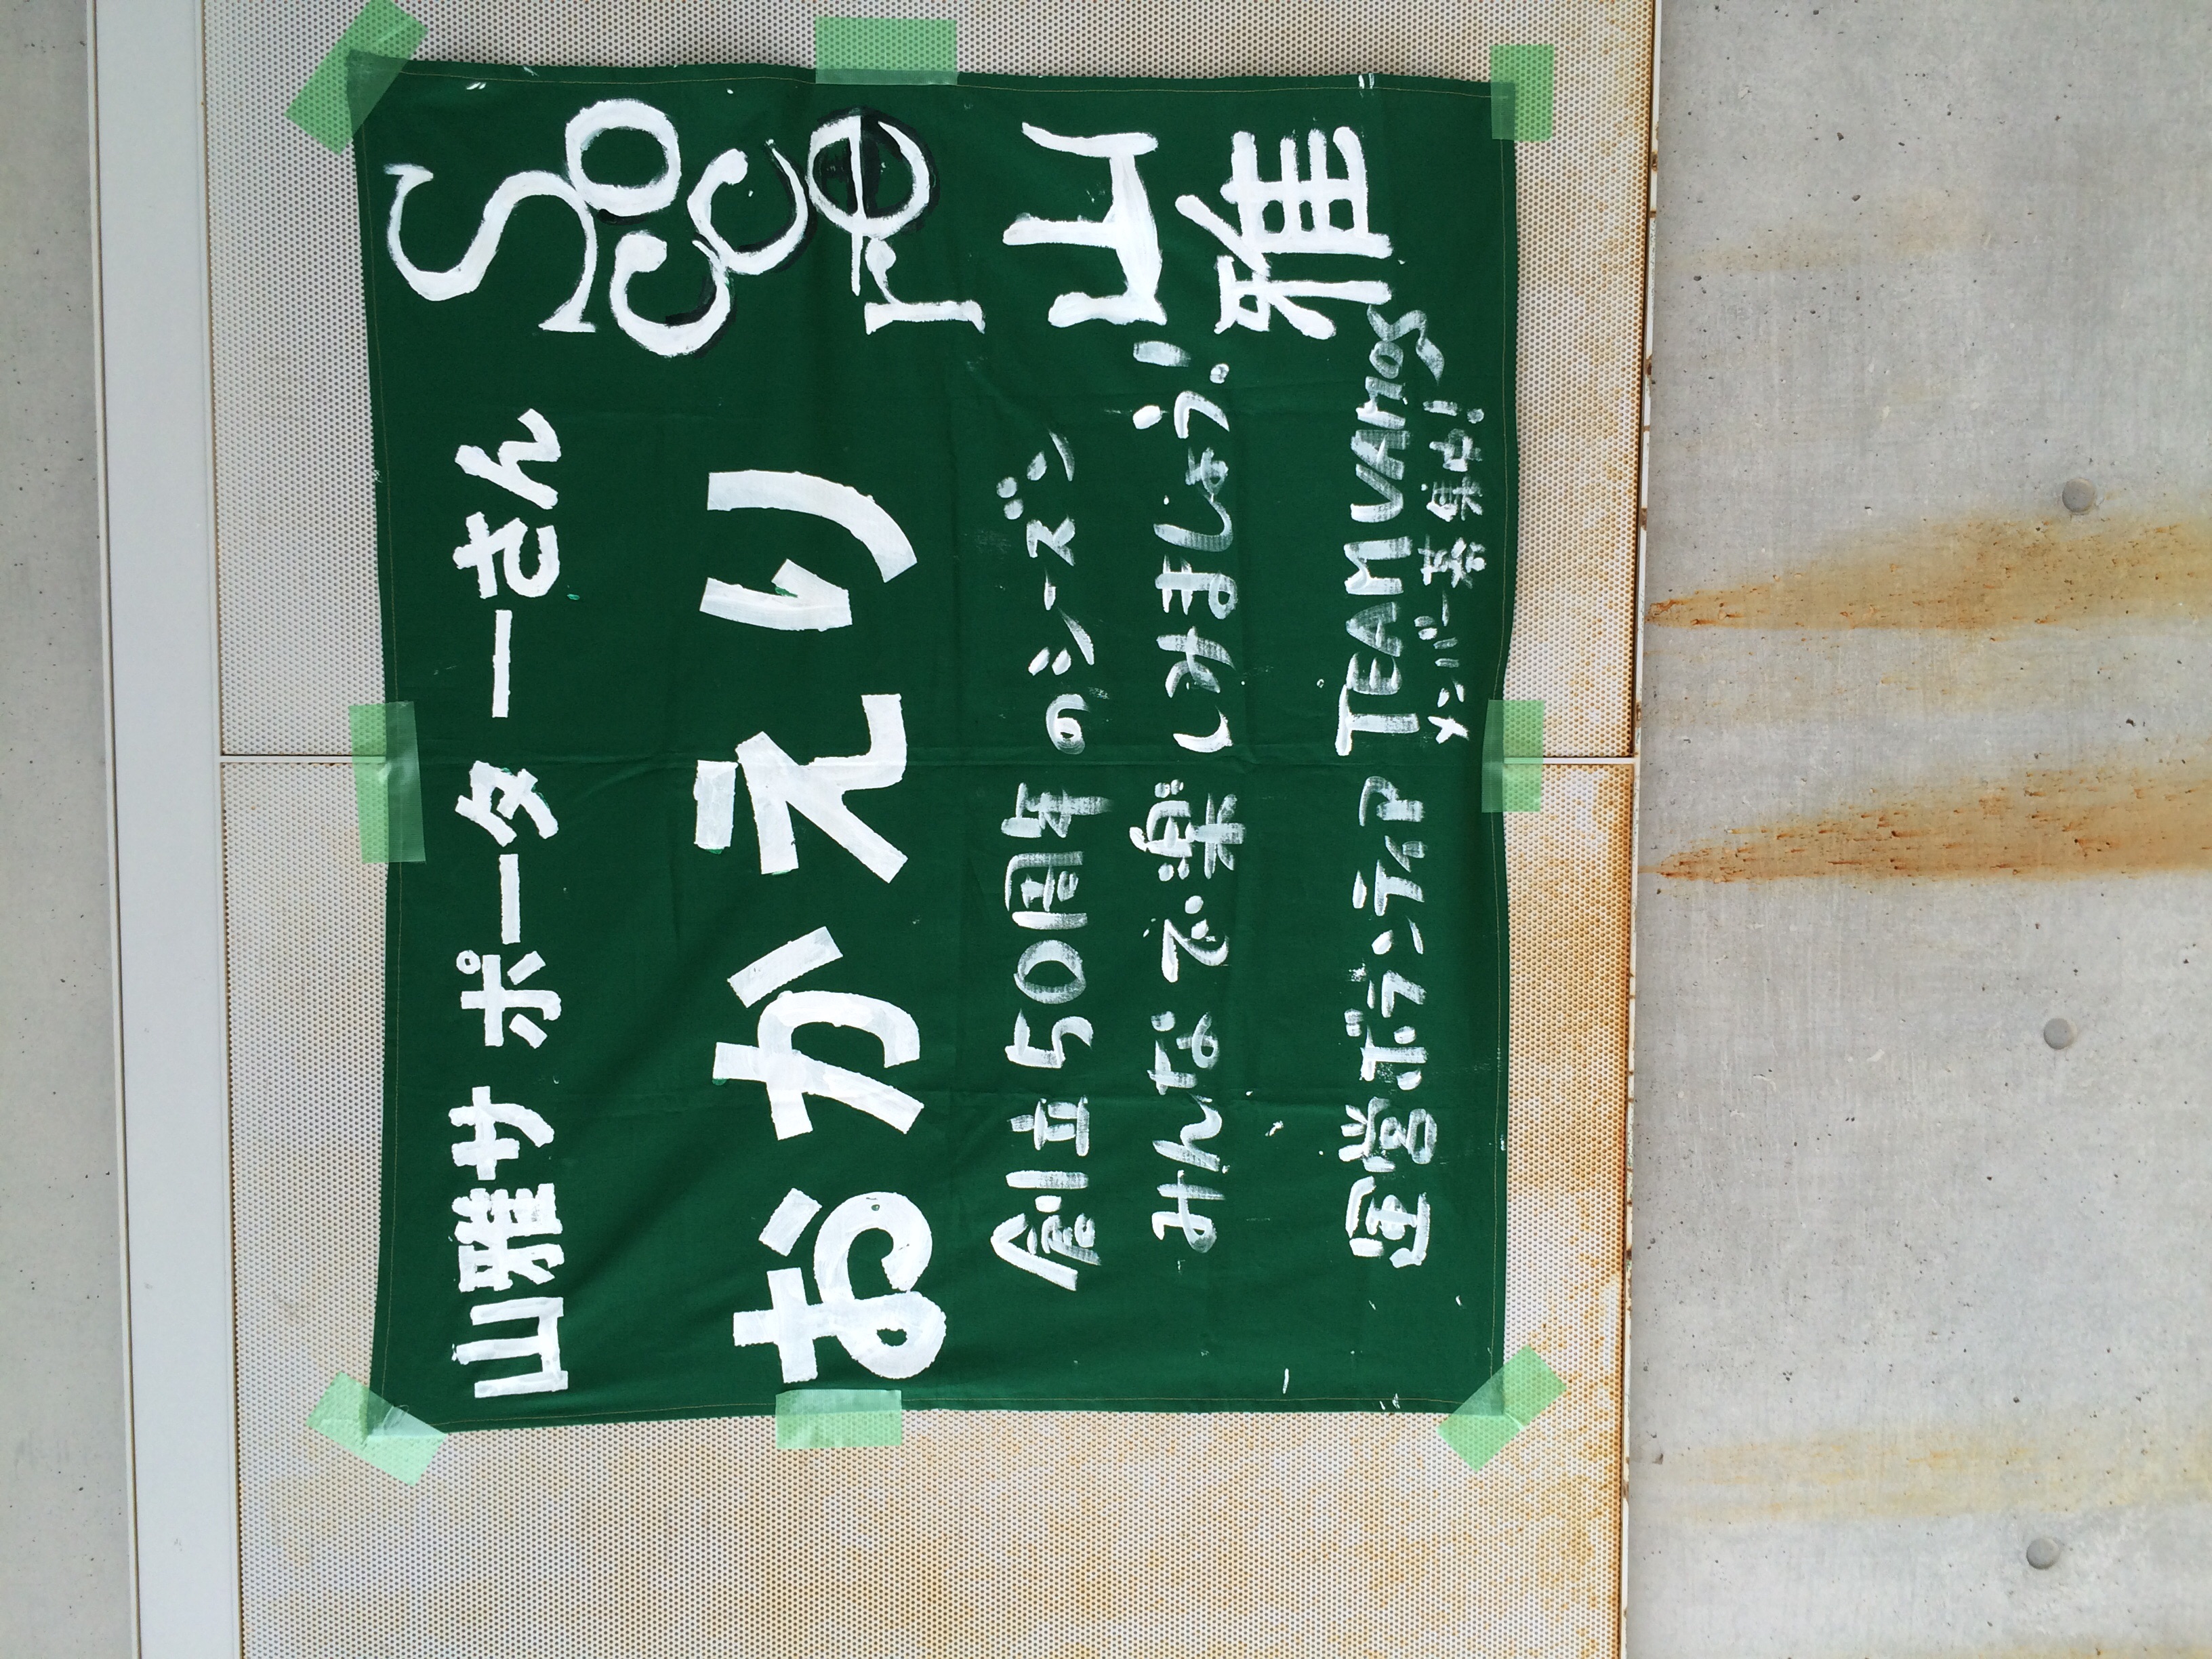 山雅サポーターさん
おかえり
創立50周年のシーズン
みんなで楽しみましょう!
運営ボランティア TEAM VAMOS
メンバー募集中!
Soccer
山雅